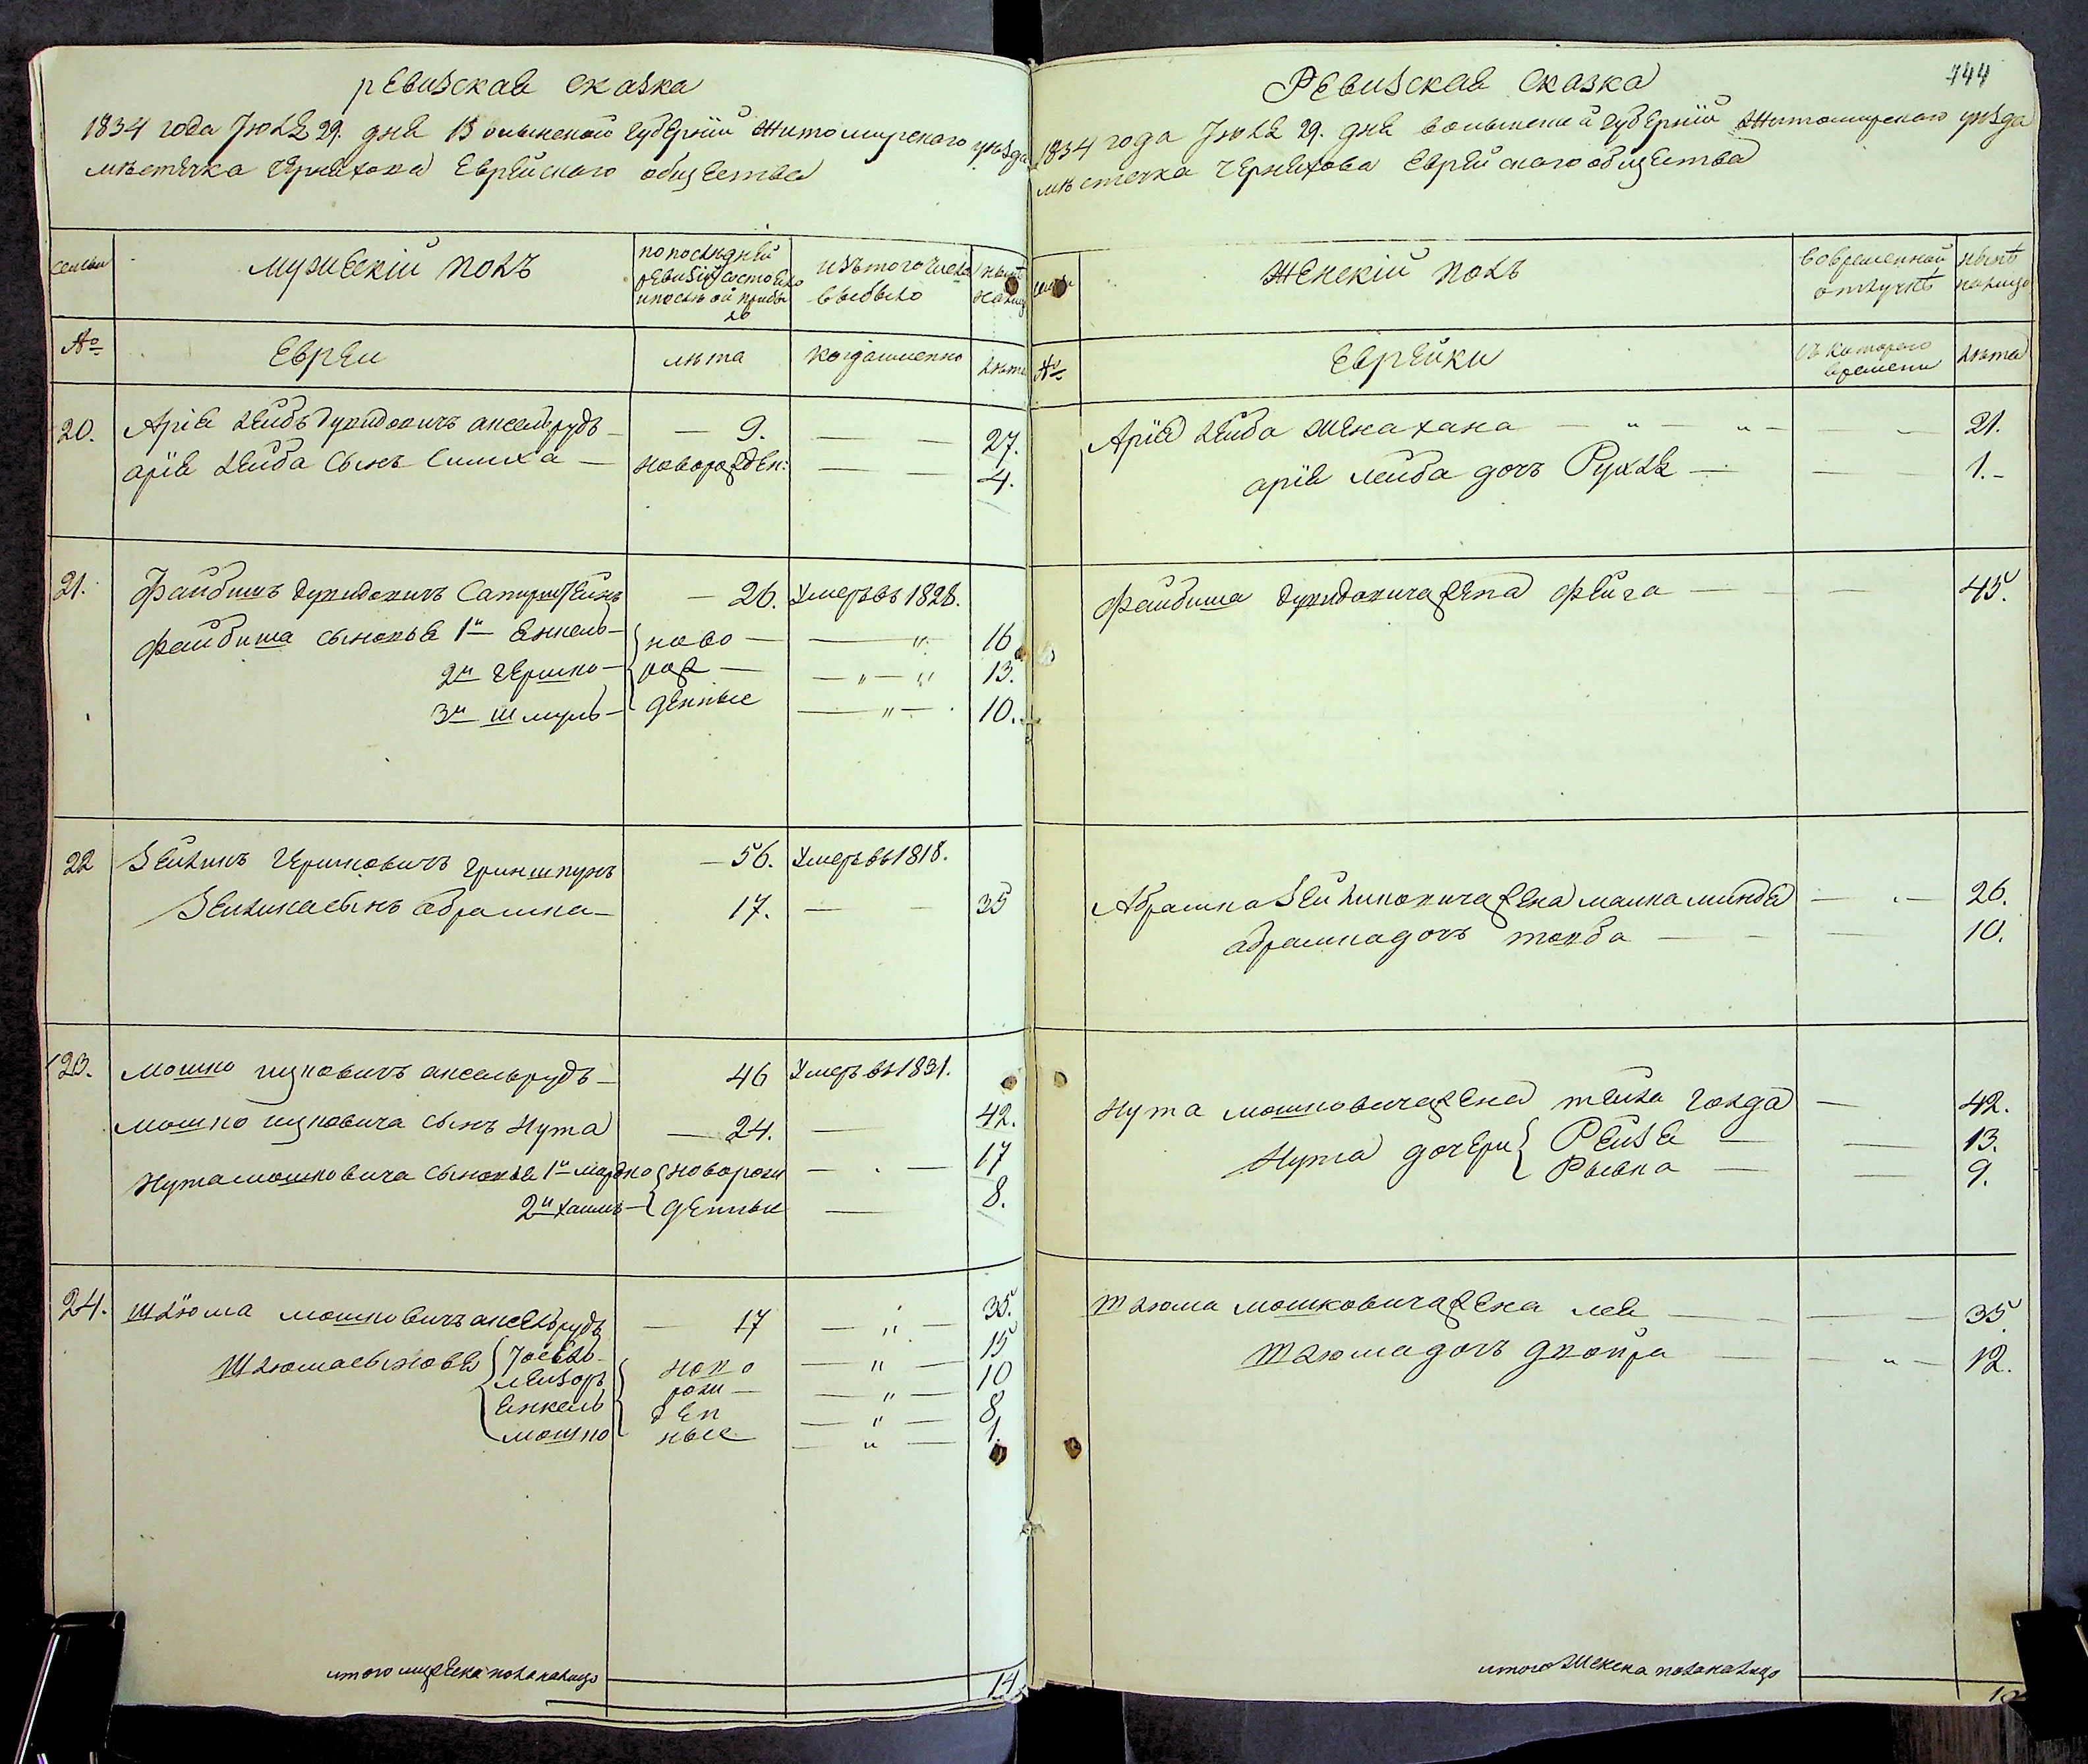 ревизская сказка
1834 года Іюля 29. дня Волынской губерніи Житомирскаго уѣзда
мѣстечка Черняхова Еврейскаго общества
семьи
мужескій полъ
по последней ревизіи состояло и после оной прибыло
изъ того числа выбыло
ныне на лицо
№
Евреи
лѣта
когда именно
лѣта
20. Арія Лейбъ Дувидовичъ аксельрудъ — 9. — — 27.
арія Лейба сынъ Симха — новорожден: — — 4.
21. Файбишъ Дувидовичъ — 26. Умеръ въ 1828.
файбиша сыновья 1й Янкель — ново — — " 16
2й Гершко — рож — — " — " 13.
3й Шмуль — денные — " — 10.
22 Зейликъ Гершковичъ гриншпунъ — 56. Умеръ въ 1818.
Зейлика сынъ абрашка — 17. — — 35
23. мошко ицковичъ аксельрудъ — 46 Умеръ въ 1831.
мошко ицковича сынъ Нута — 24. — 42.
Нута мошковича сыновья 1й мордко новорож — . — 17
2й хаимъ — денные — 8.
24. Шлюма мошковичъ аксельрудъ — 17 — " — 35.
Шлюма сыновья Іосько — ново — " — 15
Лейзоръ рож — — " — 10
Янкель ден — " — 8
мошко ные — " — 1.
итого мужеска пола на лицо 14
744
Ревизская сказка
1834 года Іюля 29. дня волынской губерніи Житомирскаго уѣзда
мѣстечка Черняхова Еврейскаго общества
семьи
женскій полъ
во временной отлучкѣ
ныне на лицо
№
Еврейки
съ котораго времени
лѣта
Арія Лейба жена хана — " — " — — — 21.
арія лейба дочь Рухля — — — 1. -
Файбиша Дувидовича жена фейга — — — 45.
Абрашка Зейликовича жена малка миндя — . — 26.
абрашка дочь товба — — — 10.
Нута мошковича жена тейла голда — 42.
Нута дочери Рейзя — — 13.
Рывка — — 9.
Шлюма мошковича жена лея — — — 35
Шлюма дочь двойра — — " — 12.
итого Женска пола на лицо